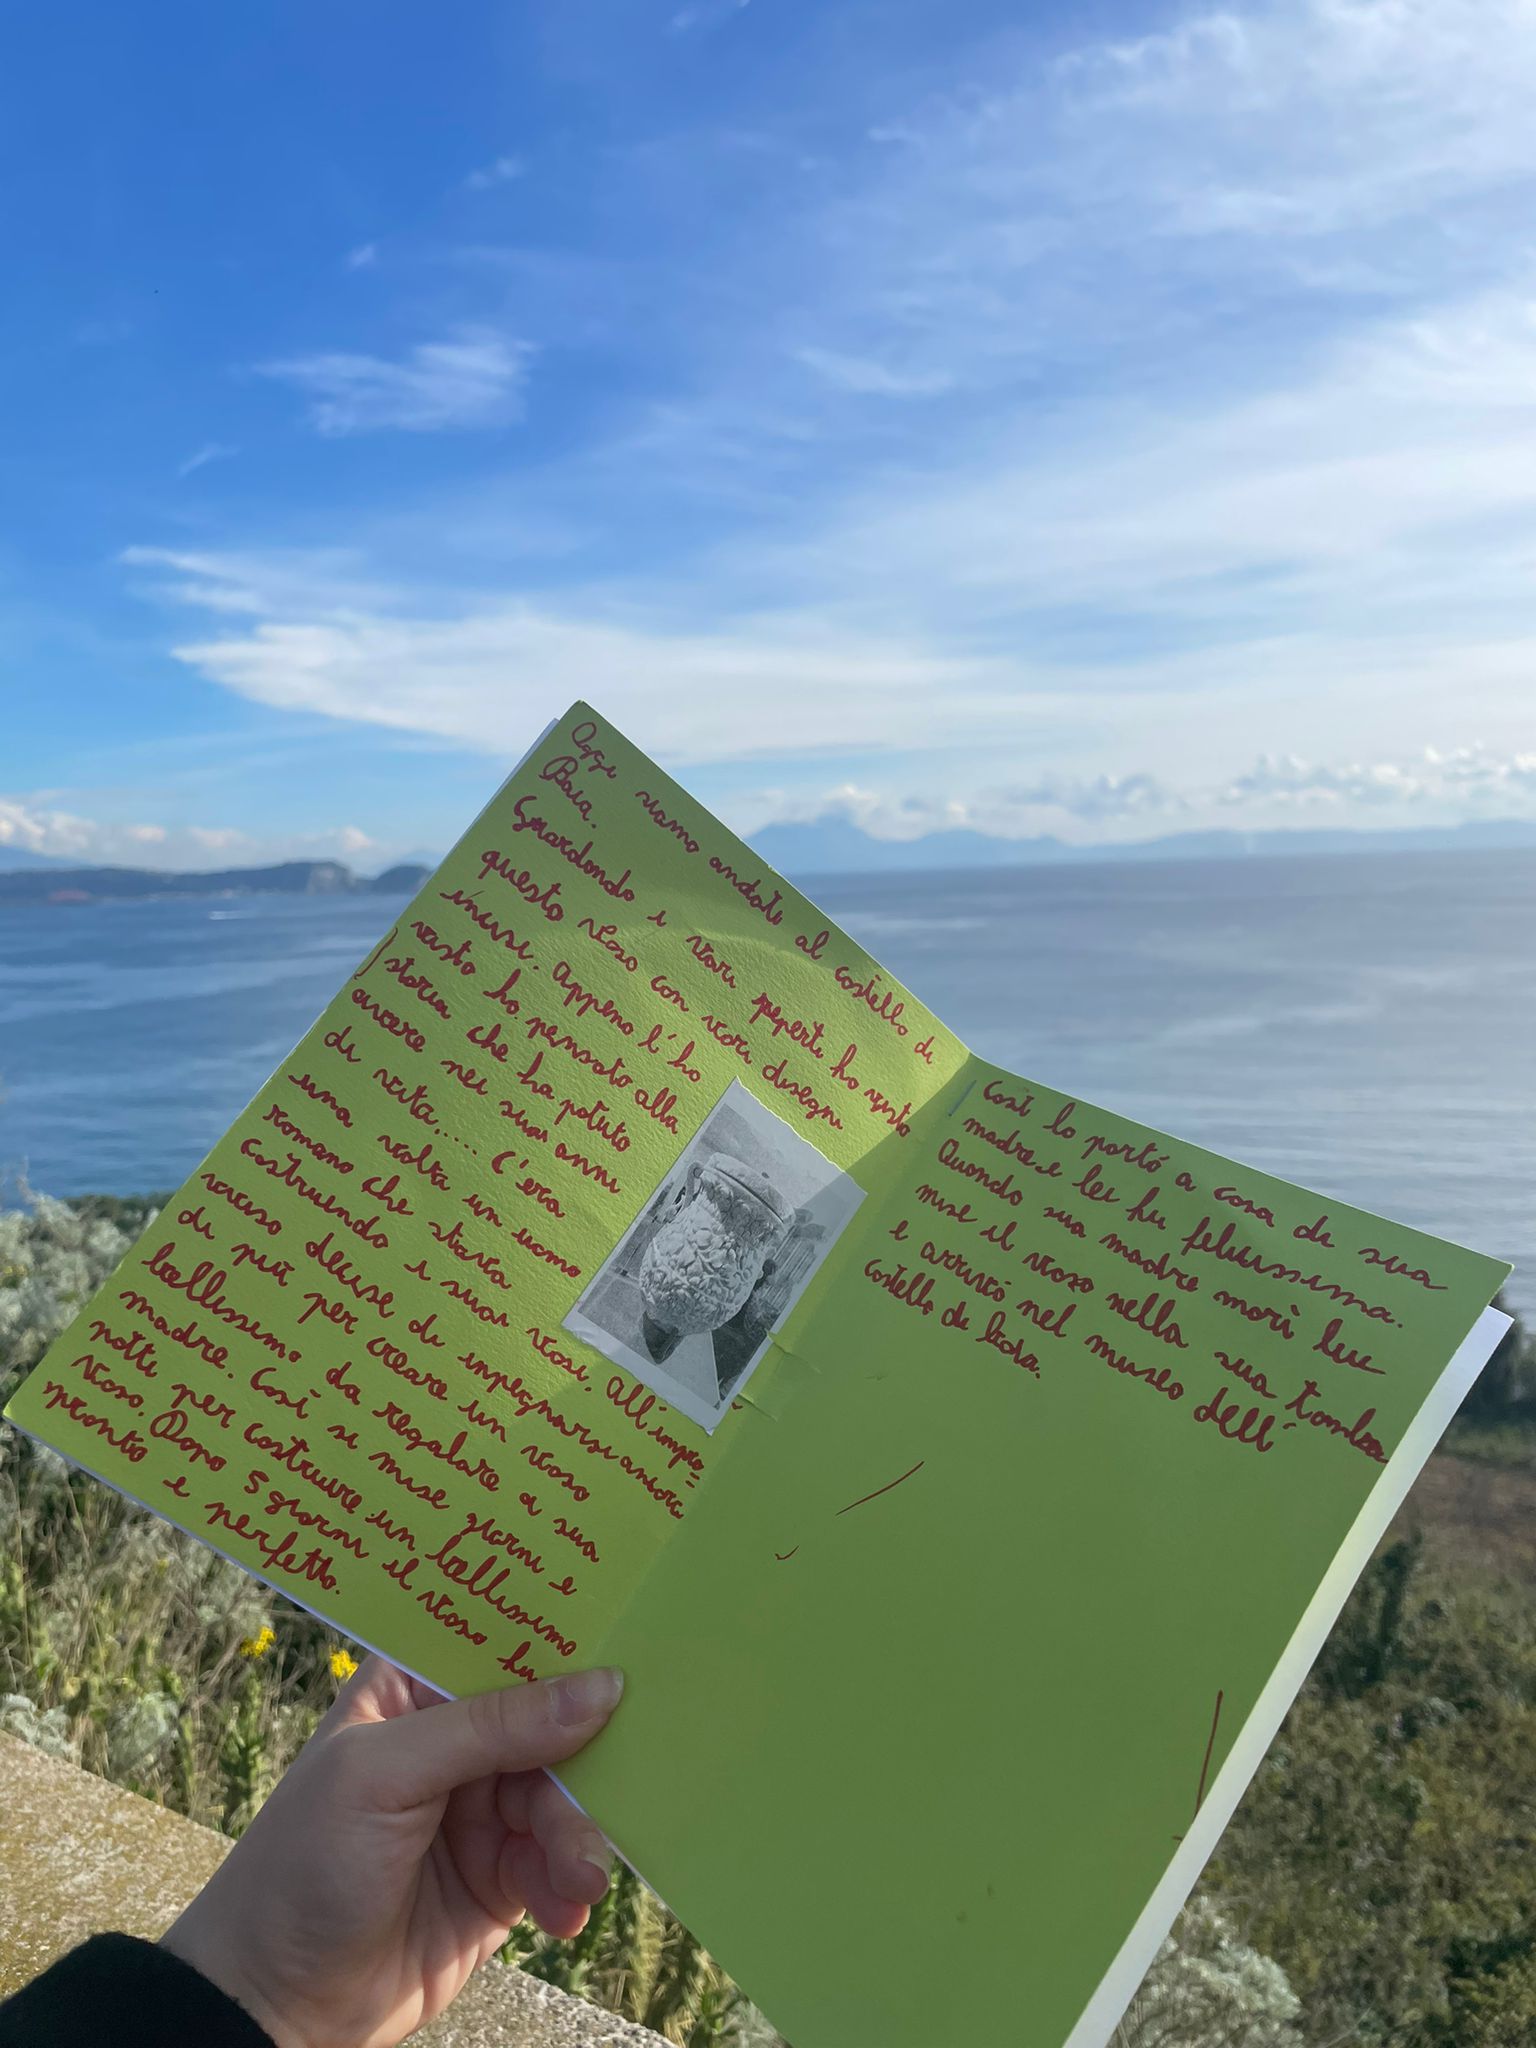 Oggi siamo andati al castello di
Baia.
Guardando i vari reperti ho visto
questo vaso con vari disegni
incisi. Appena l'ho
visto ho pensato alla
storia che ha potuto
avere nei suoi anni
di vita.... C'era
una volta un uomo
romano che stava
costruendo i suoi vasi. All'impro=
vviso decise di impegnarsi ancora
di più per creare un vaso
bellissimo da regalare a sua
madre. Così si mise giorni e
notti per costruire un bellissimo
vaso. Dopo 5 giorni il vaso fu
pronto e perfetto.
Così lo portò a casa di sua
madre e lei fu felicissima.
Quando sua madre morì lui
mise il vaso nella sua tomba
e arrivò nel museo dell'
Castello di Baia.